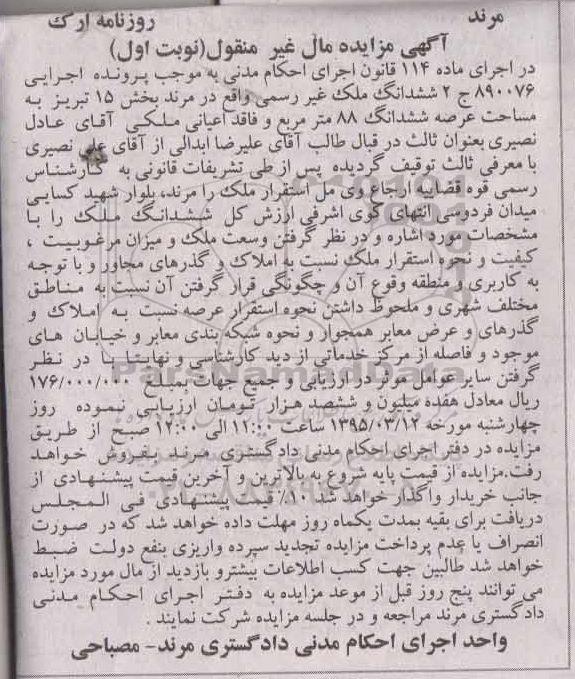 مرند
روزنامه ارک
آگهی مزایده مال غیر منقول(نوبت اول)
در اجرای ماده ۱۱۴ قانون اجرای احکام مدنی به موجب پرونده اجرایی
۸۹۰۰۷۶ ج ۲ ششدانگ ملک غیر رسمی واقع در مرند بخش ۱۵ تبریز به
مساحت عرصه ششدانگ ۸۸ متر مربع و فاقد اعیانی ملکی آقای عادل
نصیری بعنوان ثالث در قبال طالب آقای علیرضا ابدالی از آقای علی نصیری
با معرفی ثالث توقیف گردیده پس از طی تشریفات قانونی به کارشناس
رسمی قوه قضاییه ارجاع وی مل استقرار ملک را مرند، بلوار شهید کسایی
میدان فردوسی انتهای کوی اشرفی ارزش کل ششدانگ ملک را با
مشخصات مورد اشاره و در نظر گرفتن وسعت ملک و میزان مرغوبیت ،
کیفیت و نحوه استقرار ملک نسبت به املاک و گذرهای مجاور و با توجه
به کاربری و منطقه وقوع آن و چگونگی قرار گرفتن آن نسبت به مناطق
مختلف شهری و ملحوظ داشتن نحوه استقرار عرصه نسبت به املاک و
گذرهای و عرض معابر همجوار و نحوه شبکه بندی معابر و خیابان های
موجود و فاصله از مرکز خدماتی از دید کارشناسی و نهایتا با در نظر
گرفتن سایر عوامل موثر در ارزیابی و جمیع جهات بمبلغ ۱۷۶/۰۰۰/۰۰۰
ریال معادل هفده میلیون و ششصد هزار تومان ارزیابی نموده روز
چهارشنبه مورخه ۱۳۹۵/۰۳/۱۲ ساعت ۱۱:۰۰ الی ۱۲:۰۰ صبح از طریق
مزایده در دفتر اجرای احکام مدنی دادگستری مرند بفروش خواهد
رفت.مزایده از قیمت پایه شروع به بالاترین و آخرین قیمت پیشنهادی از
جانب خریدار واگذار خواهد شد ۱۰٪ قیمت پیشنهادی فی المجلس
دریافت برای بقیه بمدت یکماه روز مهلت داده خواهد شد که در صورت
انصراف یا عدم پرداخت مزایده تجدید سپرده واریزی بنفع دولت ضبط
خواهد شد طالبین جهت کسب اطلاعات بیشترو بازدید از مال مورد مزایده
می توانند پنج روز قبل از موعد مزایده به دفتر اجرای احکام مدنی
دادگستری مرند مراجعه و در جلسه مزایده شرکت نمایند .
واحد اجرای احکام مدنی دادگستری مرند- مصباحی
ParsNamadData